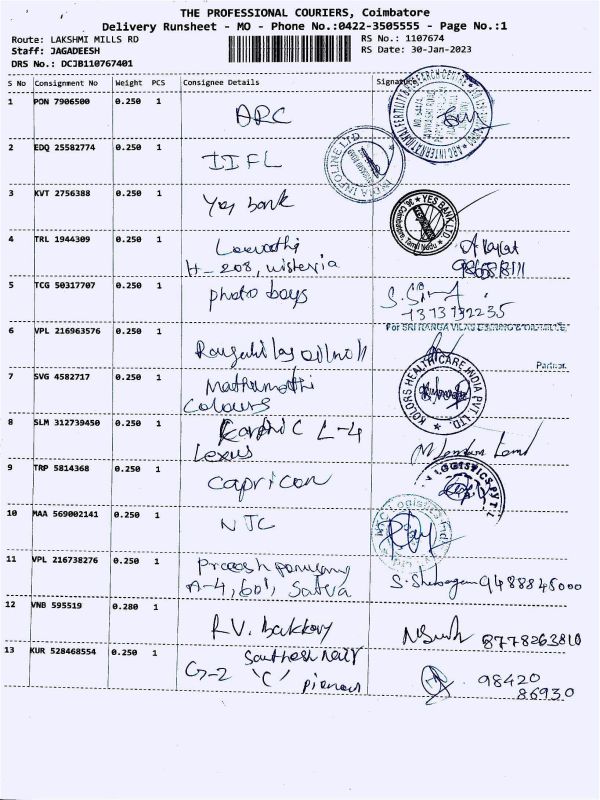 THE PROFESSIONAL COURIERS, Coimbatore
Delivery Runsheet - MO - Phone No.:0422-3505555 - Page No.:1
Route: LAKSHMI MILLS RD
RS No.: 1107674
Staff: JAGADEESH
RS Date: 30-Jan-2023
DRS No.: DCJB110767401
S No Consignment No Weight PCS Consignee Details Signature
1 PON 7906500 0.250 1 ARC
2 EDQ 25582774 0.250 1 IIFL
INDIA INFOLINE LTD
3 KVT 2756388 0.250 1 Yes bank
YES BANK LTD
4 TRL 1944309 0.250 1
H-208, wisteria
5 TCG 50317707 0.250 1 photo boys
For SRI RANGA VILAS
6 VPL 216963576 0.250 1
Partner.
7 SVG 4582717 0.250 1 Mathumathi
Colours
KOLORS HEALTHCARE INDIA PVT. LTD
8 SLM 312739450 0.250 1 L-4
Lexus
9 TRP 5814368 0.250 1 Capricon
LOGISTICS PVT
10 MAA 569002141 0.250 1 NTC
NTC Logistics India
11 VPL 216738276 0.250 1
A-4, 601, Satva
9488845000
12 VNB 595519 0.280 1 RV.
8778263810
13 KUR 528468554 0.250 1 Santhosh Nair
G-2 'C'
98420
86930